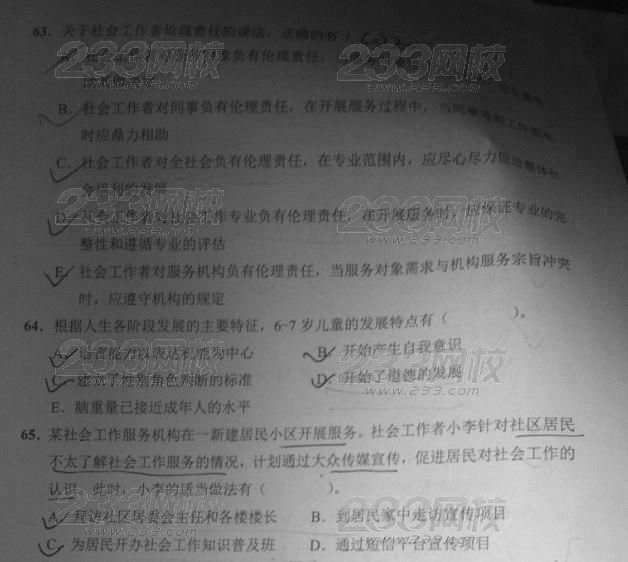 63. 关于社会工作者伦理责任的说法，正确的有（
负有伦理责任，
B. 社会工作者对同事负有伦理责任，在开展服务过程中，当同事遇到工作困难
时应鼎力相助
C. 社会工作者对全社会负有伦理责任，在专业范围内，应尽心尽力促进整体社
会福利的发展
D. 社会工作者对社会工作专业负有伦理责任，在开展服务时，应保证专业的完
整性和遵循专业的评估
E. 社会工作者对服务机构负有伦理责任，当服务对象需求与机构服务宗旨冲突
时，应遵守机构的规定
64. 根据人生各阶段发展的主要特征，6~7岁儿童的发展特点有（ ）。
A. 语言能力以表达机能为中心 B. 开始产生自我意识
C. 建立了性别角色判断的标准 D. 开始了道德的发展
E. 脑重量已接近成年人的水平
65. 某社会工作服务机构在一新建居民小区开展服务。社会工作者小李针对社区居民
不太了解社会工作服务的情况，计划通过大众传媒宣传，促进居民对社会工作的
认识。此时，小李的适当做法有（ ）。
A. 拜访社区居委会主任和各楼楼长 B. 到居民家中走访宣传项目
C. 为居民开办社会工作知识普及班 D. 通过短信平台宣传项目
233网校
www.233.com